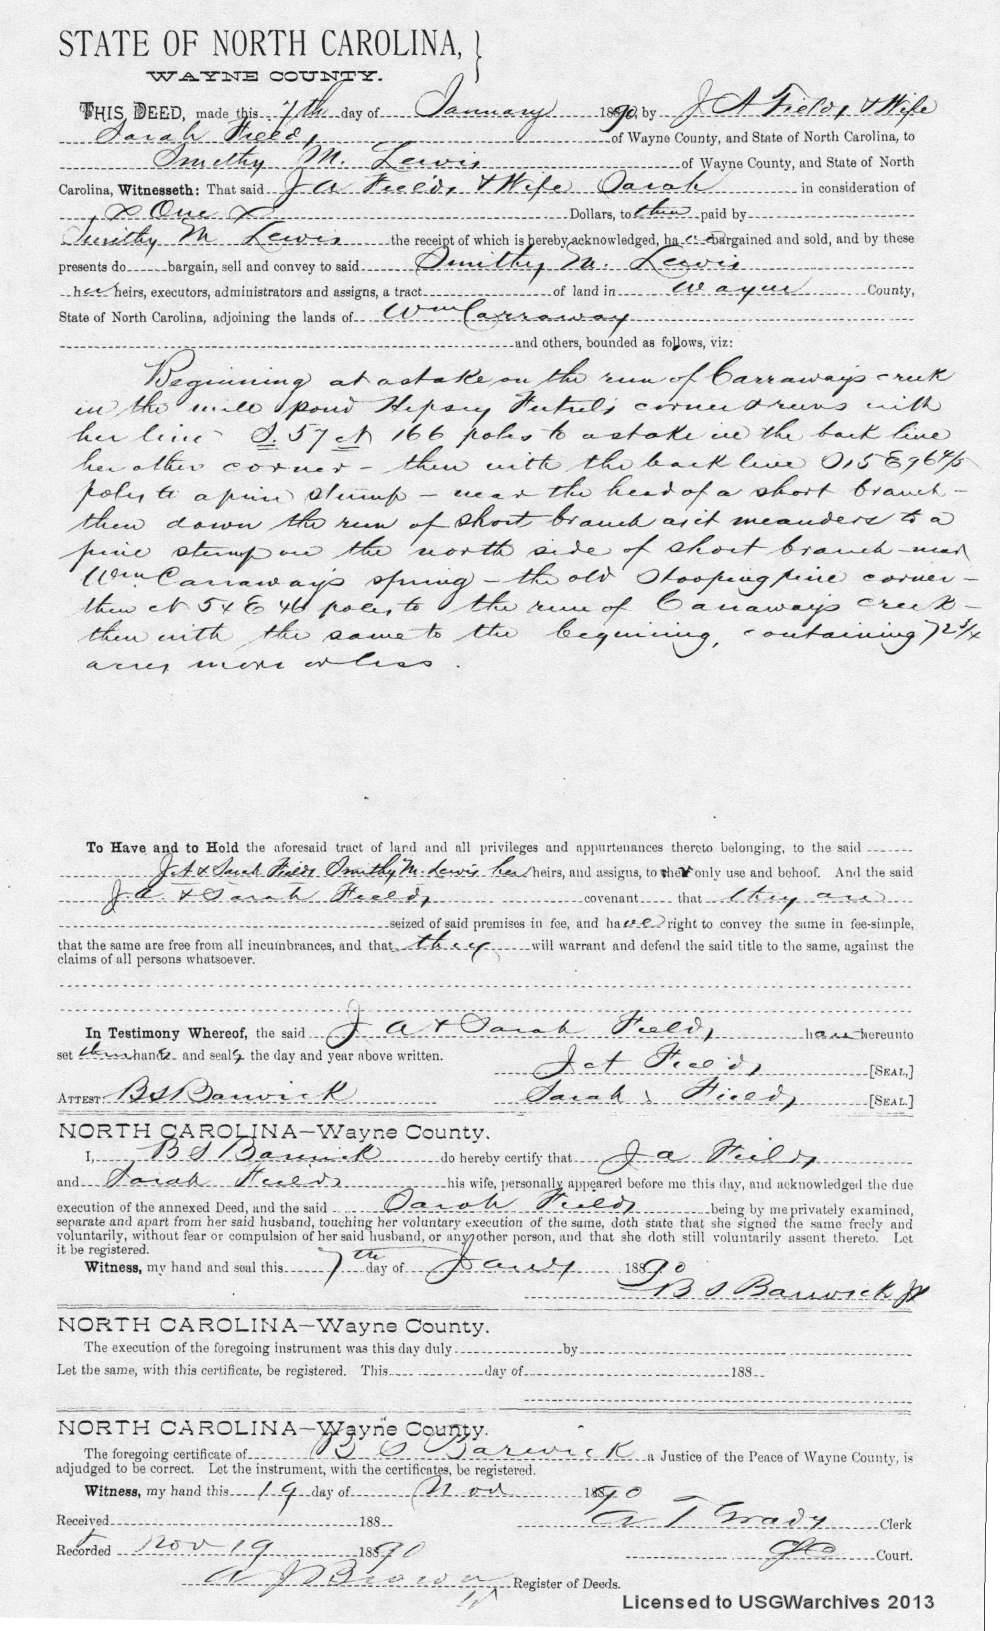 STATE OF NORTH CAROLINA,
WAYNE COUNTY.
THIS DEED, made this 7th day of January 1890, by J A Fields & Wife
Sarah Fields, of Wayne County, and State of North Carolina, to
Smithy M. Lewis of Wayne County, and State of North
Carolina, Witnesseth: That said J A Fields & Wife Sarah in consideration of
x One x Dollars, to them paid by
Smithy M Lewis the receipt of which is hereby acknowledged, ha ve bargained and sold, and by these
presents do bargain, sell and convey to said Smithy M. Lewis
her heirs, executors, administrators and assigns, a tract of land in Wayne County,
State of North Carolina, adjoining the lands of Wm Carraway
and others, bounded as follows, viz:
Beginning at a stake on the run of Carraways creek
in the mill pond Hepsey Futrels corner & runs with
her line S. 57 W 166 poles to a stake in the back line
her other corner - then with the back line S 15 E 96 4/5
poles to a pine stump - near the head of a short branch -
then down the run of short branch as it meanders to a
pine stump on the north side of short branch - near
Wm Carraways spring - the old stooping pine corner -
then N 54 E 46 poles to the run of Carraways creek -
then with the same to the beginning, containing 72 3/4
acres more or less.
To Have and to Hold the aforesaid tract of land and all privileges and appurtenances thereto belonging, to the said
J A & Sarah Fields Smithy M. Lewis her heirs, and assigns, to their only use and behoof. And the said
J. A. & Sarah Fields, covenant that they are
seized of said premises in fee, and have right to convey the same in fee-simple,
that the same are free from all incumbrances, and that they will warrant and defend the said title to the same, against the
claims of all persons whatsoever.
In Testimony Whereof, the said J A & Sarah Fields, have hereunto
set their hands and seals the day and year above written.
J A Fields [SEAL.]
ATTEST B S Barwick Sarah Fields [SEAL.]
NORTH CAROLINA—Wayne County.
I, B S Barwick do hereby certify that J A Fields
and Sarah Fields his wife, personally appeared before me this day, and acknowledged the due
execution of the annexed Deed, and the said Sarah Fields being by me privately examined,
separate and apart from her said husband, touching her voluntary execution of the same, doth state that she signed the same freely and
voluntarily, without fear or compulsion of her said husband, or any other person, and that she doth still voluntarily assent thereto. Let
it be registered.
Witness, my hand and seal this 7th day of Jany 1890
B S Barwick JP
NORTH CAROLINA—Wayne County.
The execution of the foregoing instrument was this day duly by
Let the same, with this certificate, be registered. This day of 188
NORTH CAROLINA—Wayne County.
The foregoing certificate of B S Barwick a Justice of the Peace of Wayne County, is
adjudged to be correct. Let the instrument, with the certificates, be registered.
Witness, my hand this 19 day of Nov 1890
Received 188 A T Grady Clerk
Recorded Nov 19 1890 Court.
A J Brown Register of Deeds.
Licensed to USGWarchives 2013